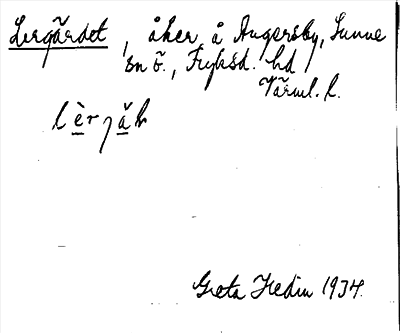 Lergärdet, åker å Angersby, Sunne
sn ö., Fryksd. hd
Värml. l.
Greta Hedin 1934.